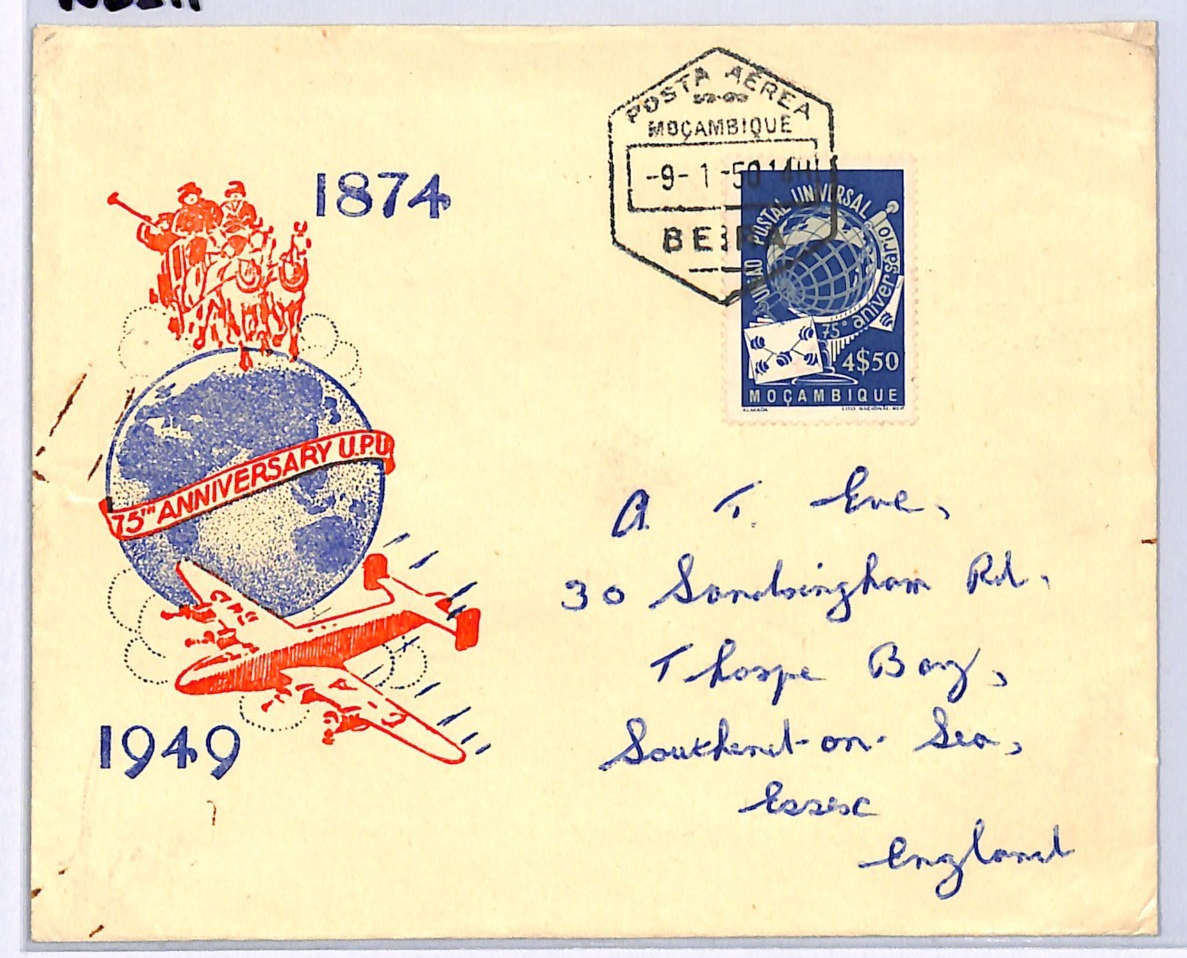 POSTA AÉREA
MOÇAMBIQUE
-9-1-50 14H
BEIRA
UNIÃO POSTAL UNIVERSAL
75º aniversário
4$50
MOÇAMBIQUE
ALMADA LITO NACIONAL
1874
75TH ANNIVERSARY U.P.U
1949
A. T. Eve,
30 Sandringham Rd.
Thorpe Bay,
Southend-on-Sea,
Essex
England